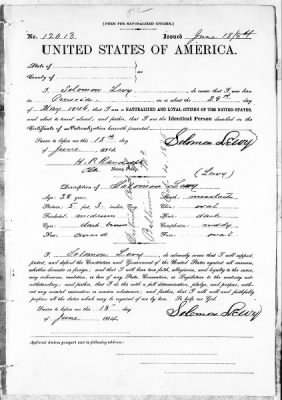 [FORM FOR NATURALIZED CITIZEN.]
No. 12013 Issued June 18/84
UNITED STATES OF AMERICA.
State of
County of
I, Solomon Levy, do swear that I was born
in Prussia, on or about the 28th day
of May 1846, that I am a NATURALIZED AND LOYAL CITIZEN OF THE UNITED STATES,
and about to travel abroad; and further, that I am the Identical Person described in the
Certificate of Naturalization herewith presented.
Sworn to before me this 13th day
of June 1884
Solomon Levy
Notary Public.
(Levy)
Description of Solomon Levy
Age: 38 years. Mouth: moderate
Stature: 5 feet 3 inches, Eng. Chin: oval
Forehead: medium Hair: dark
Eyes: dark brown Complexion: ruddy
Nose: Face: oval
I, Solomon Levy, do solemnly swear that I will support,
protect, and defend the Constitution and Government of the United States against all enemies,
whether domestic or foreign; and that I will bear true faith, allegiance, and loyalty to the same,
any ordinance, resolution, or law of any State, Convention, or Legislature to the contrary not-
withstanding; and further, that I do this with a full determination, pledge, and purpose, with-
out any mental reservation or evasion whatsoever; and further, that I will well and faithfully
perform all the duties which may be required of me by law. So help me God.
Sworn to before me this 13 day
of June 1884
Solomon Levy
Applicant desires passport sent to following address: